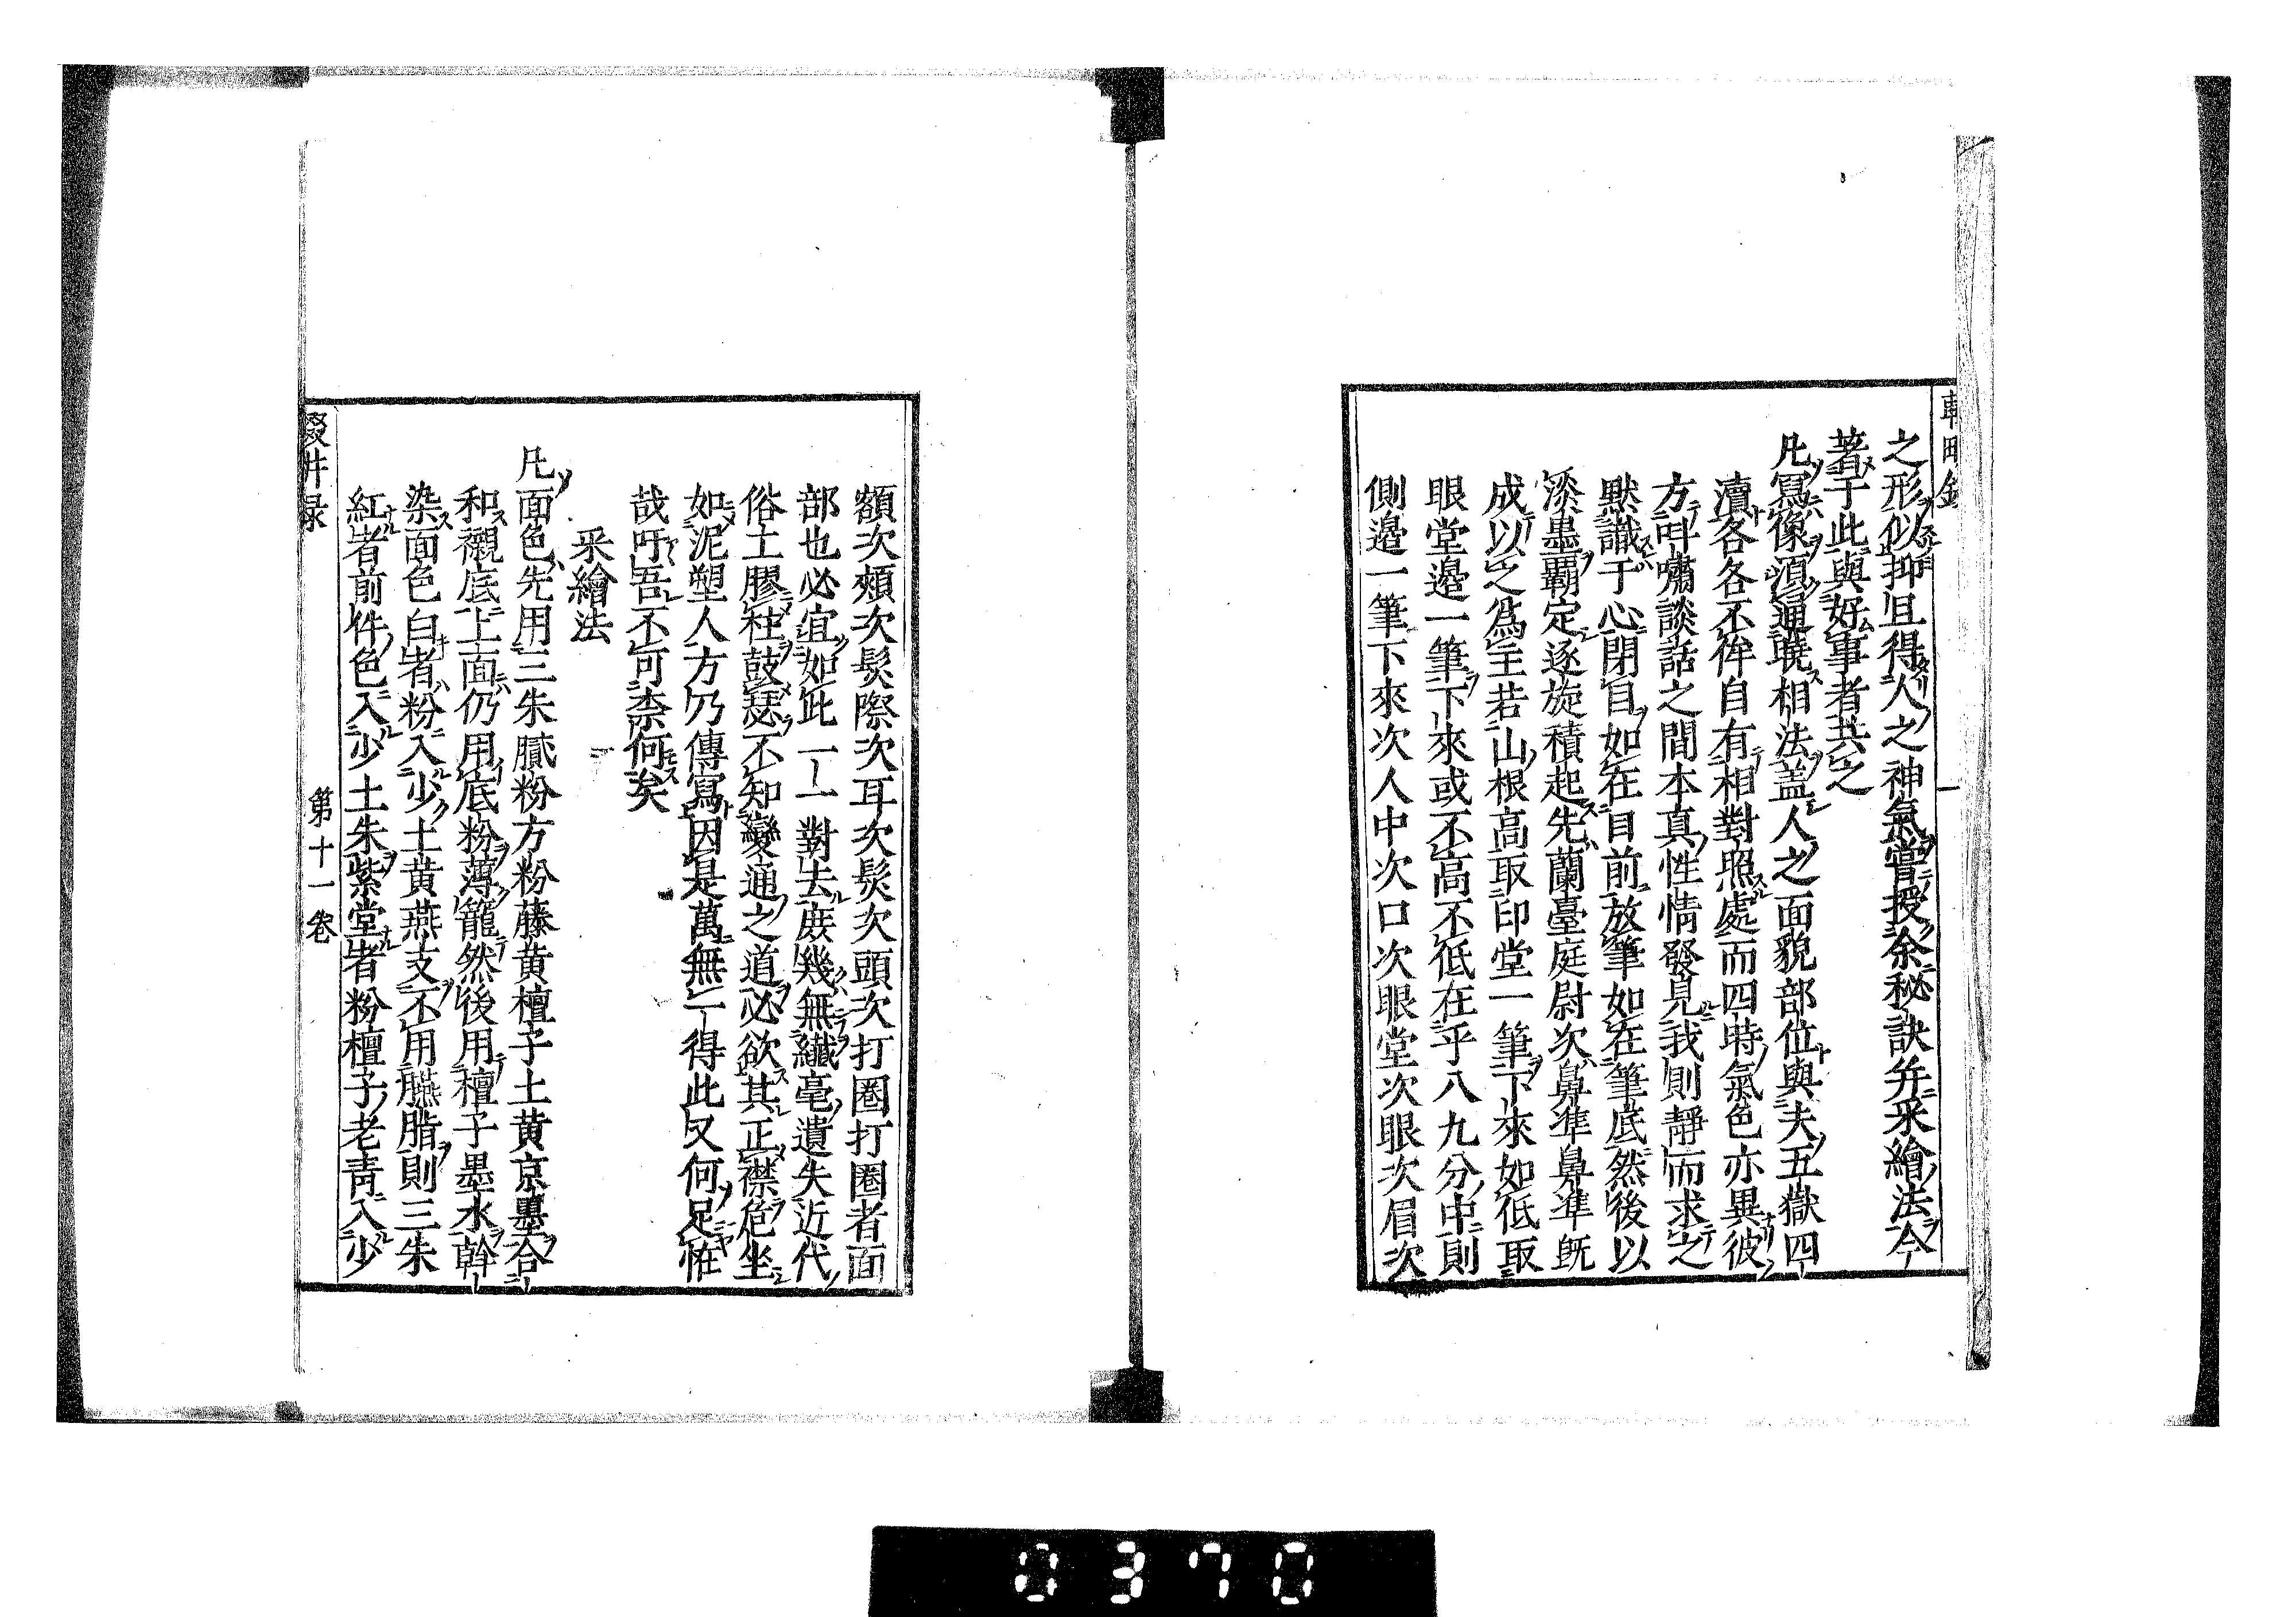 之形似抑且得人之神氣嘗授余秘訣并采繪法今
著于此與好事者共之
凡寫像須通曉相法盖人之面貌部位與夫五嶽四
瀆各各不侔自有相對照處而四時氣色亦異彼
方呌嘯談話之間本真性情發見我則靜而求之
默識于心閉目如在目前放筆如在筆底然後以
淡墨覇定逐旋積起先蘭臺庭尉次鼻準鼻準既
成以之爲主若山根高取印堂一筆下來如低取
眼堂邉一筆下來或不高不低在乎八九分中則
側邉一筆下來次人中次口次眼堂次眼次眉次
額次頰次髮際次耳次髮次頭次打圏打圏者面
部也必宜如此一一對去庻幾無纎毫遺失近代
俗工膠柱鼓瑟不知變通之道必欲其正襟危坐
如泥塑人方乃傳寫因是萬無一得此又何足恠
哉吁吾不可柰何矣
采繪法
凡面色先用三朱膩粉方粉藤黄檀子土黄京墨合
和襯底上面仍用底粉薄籠然後用檀子墨水斡
染面色白者粉入少土黄燕支不用臙脂則三朱
紅者前件色入少土朱紫堂者粉檀子老靑入少
輟畊録
第十一卷
0370